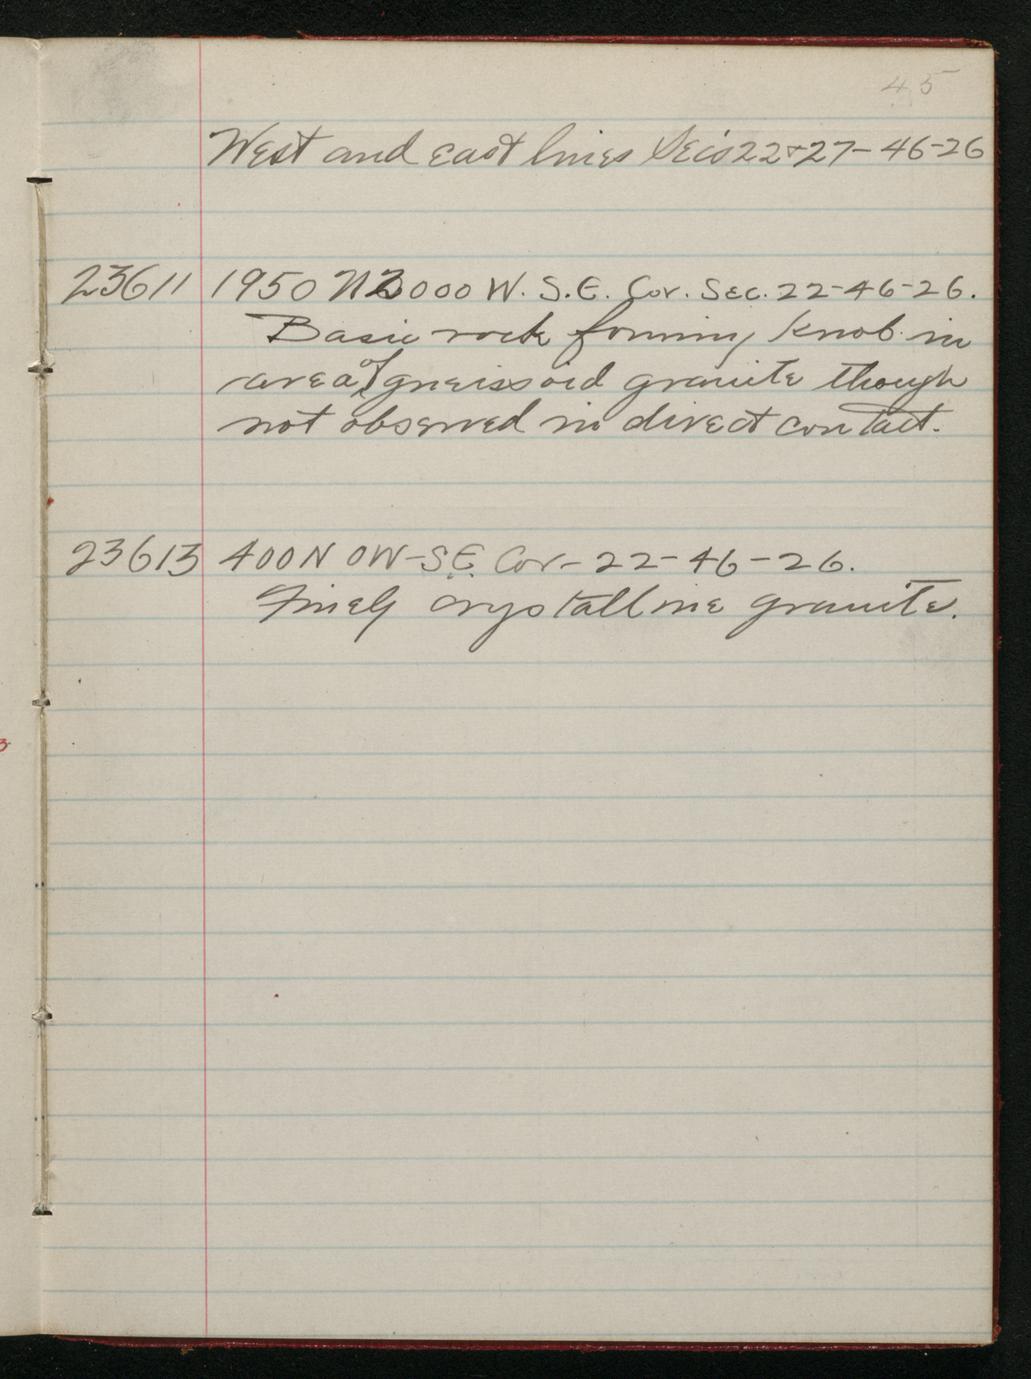 45
West and east lines Secs 22 & 27 - 46-26
23611 1950 N 2000 W. S.E. Cor. Sec. 22-46-26.
Basic rock forming knob in
area of gneissoid granite though
not observed in direct contact.
23613 400 N 0 W - S.E. Cor - 22-46-26.
Finely crystalline granite.